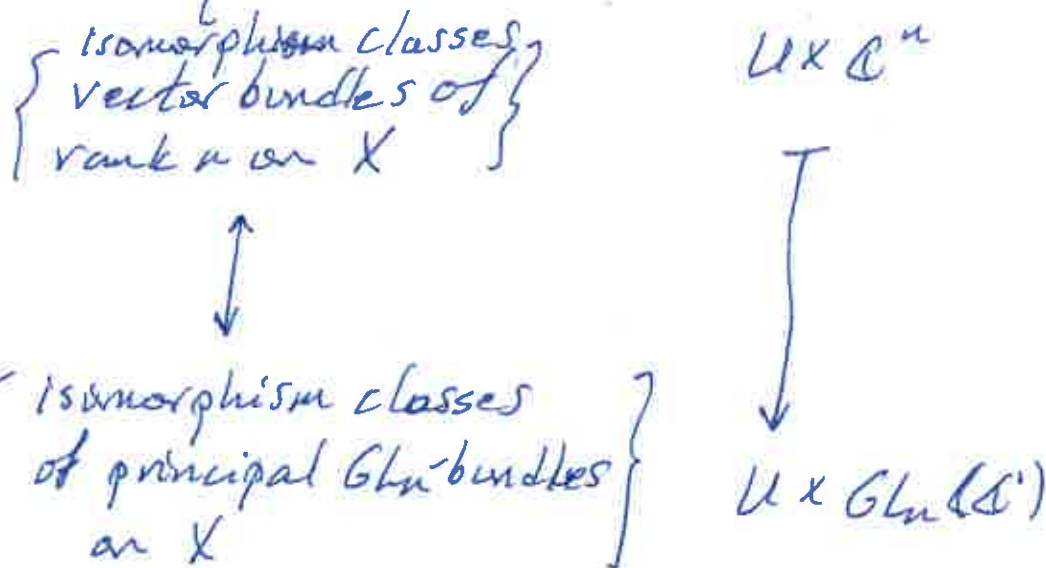 { isomorphism classes }
vector bundles of
rank n on X
U × ℂⁿ
isomorphism classes
of principal GLₙ-bundles }
on X
U × GLₙ(ℂ)